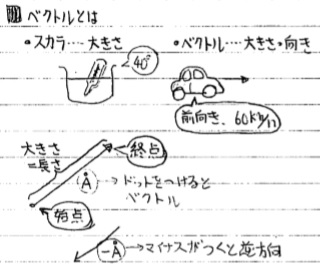 1 ベクトルとは
・スカラ‥‥大きさ
・ベクトル‥‥大きさ・向き
40°
前向き、60km/h
大きさ
=長さ
終点
Ȧ
→ドットをつけると
ベクトル
始点
-Ȧ
→マイナスがつくと逆方向